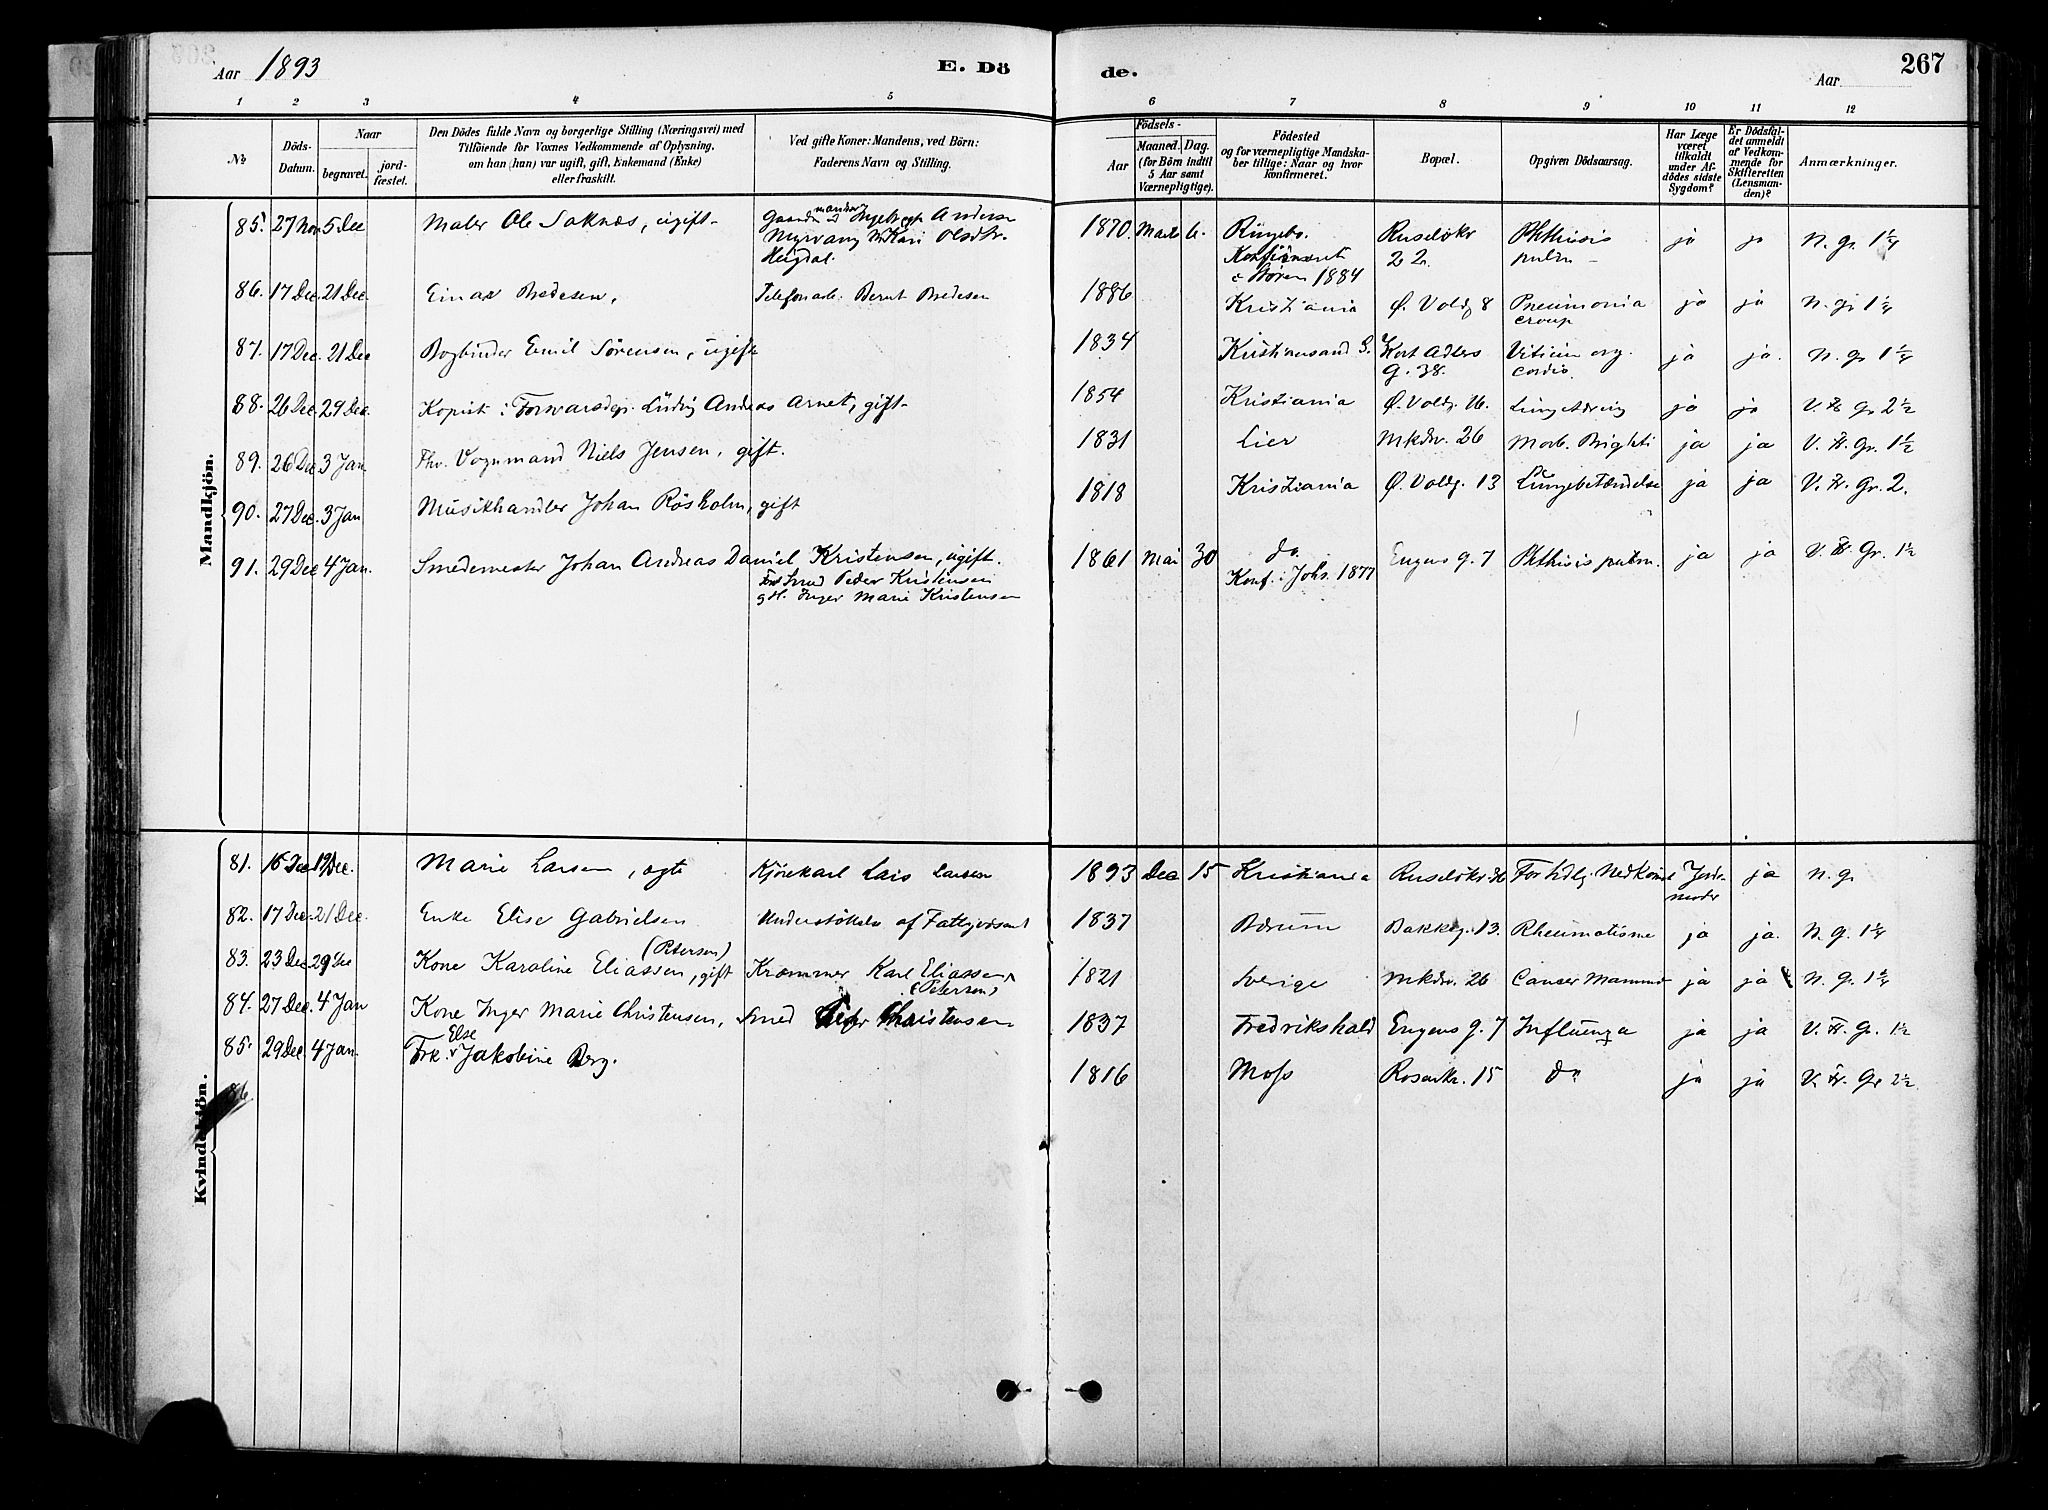 Aar 1893
E. Dö
de.
Aar
267
1 2 3 4 5 6 7 8 9 10 11 12
No
Döds-Datum.
Naar
begravet.
jord-fæstet.
Den Dödes fulde Navn og borgerlige Stilling (Næringsvei) med
Tilföiende for Voxnes Vedkommende af Oplysning,
om han (hun) var ugift, gift, Enkemand (Enke)
eller fraskilt.
Ved gifte Koner: Mandens, ved Börn:
Faderens Navn og Stilling.
Födsels-
Aar
Maaned. Dag.
(for Börn indtil
5 Aar samt
Værnepligtige).
Födested
og for værnepligtige Mandska-
ber tillige: Naar og hvor
konfirmeret.
Bopæl.
Opgiven Dödsaarsag.
Har Læge
været
tilkaldt
under Af-
dödes sidste
Sygdom?
Er Dödsfal-
det anmeldt
af Vedkom-
mende for
Skifteretten
(Lensman-
den)?
Anmærkninger.
Mandkjön.
85. 27 Nov 5 Dec Maler Ole Saknæs, ugift Gaardmand Ingebregt Andersen 1870. Marts 6. Ringebo. Ruselökv Phthisis ja ja N. gr. 1 1/4
Myrvang Kari Olsdtr. Konfirmeret 22. pulm
Heigdal. Støren 1884
86. 17 Dec. 21 Dec. Einar Bredesen, Telefonarb. Bernt Bredesen 1886 Kristiania Ø. Voldg 8 Pneumonia ja ja N. gr 1 1/4
croup
87. 17 Dec. 21 Dec Bogbinder Emil Sörensen, ugift 1834 Kristiansand S. Kort Adlers Vitium org. ja ja. N. gr 1 1/4
G. 38. cordis.
88. 26 Dec. 29 Dec. Kopist i Forsvarsdep. Ludvig Andreas Arnet, gift 1854 Kristiania Ø. Voldg. 16. ja ja V. Fr. gr 2 1/2
89. 26 Dec 3 Jan Fhv. Vognmand Niels Jensen, gift. 1831 Lier Mkdv. 26 Morb. Brighti ja ja V. Fr. Gr. 1 1/2
90. 27 Dec. 3 Jan Musikhandler Johan Rösholm, gift 1818 Kristiania Ø. Voldg. 13 Lungebetændelse ja ja V. Fr. Gr. 2.
91. 29 Dec 4 Jan. Smedemester Johan Andreas Daniel Kristensen, ugift. 1861 Mai 30 do. Eugens g. 7 Phthisis pulm. ja ja V. Fr. Gr. 1 1/2
Smed Peder Kristensen Konf. i Johs. 1877
og H. Inger Marie Kristensen
Kvindekjön.
81. 16 Dec 19 Dec. Marie Larsen, ægte Kjörekarl Lars Larsen 1893 Dec 15 Kristiania Ruselökv Forhdlg. Nedkomst Jord-moder ja N. g.
82. 17 Dec. 21 Dec. Enke Elise Gabrielsen Understöttelse af Fattigvæsenet 1837 Bærum Bakkeg. 13. Rheumatisme ja ja. N. g. 1 1/4
83. 23 Dec 29 Dec Kone Karoline Eliassen, (Petersen) gift Kræmmer Karl Eliassen (Petersen) 1821 Sverige Mkdv. 26 Cancer Mammæ ja ja N. g. 1 1/4
84. 27 Dec. 4 Jan Kone Inger Marie Christensen, Smed Peder Christensen 1837 Fredrikshald Eugens g. 7 Influenza ja ja V. Fr. Gr. 1 1/2
85. 29 Dec. 4 Jan. Frk. Else Jakobine Berg. 1816 Moss Rosenkr. 15 do ja ja V. Fr. Gr 2 1/2
86.